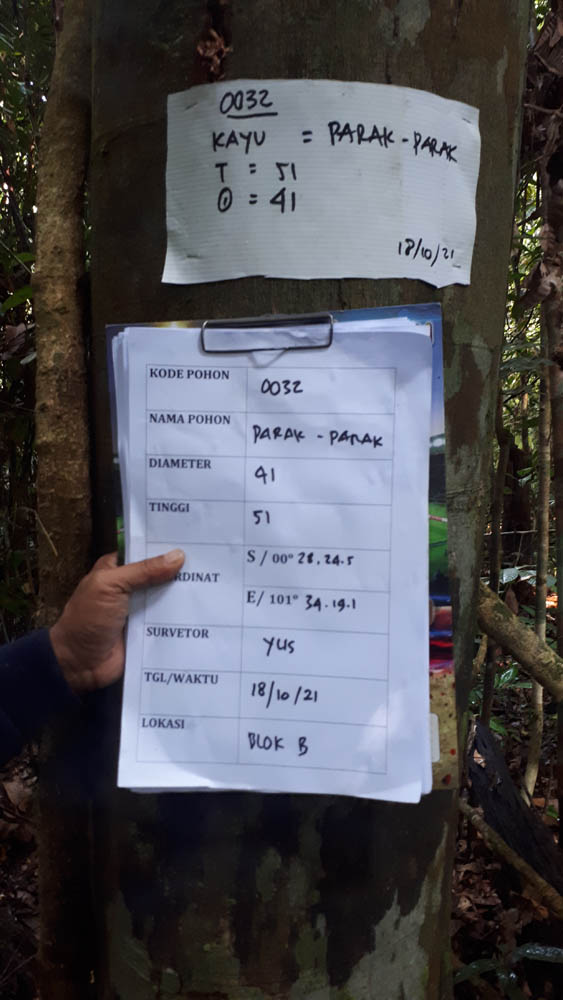 0032
KAYU = PARAK - PARAK
T = 51
Ø = 41
18/10/21
KODE POHON 0032
NAMA POHON PARAK - PARAK
DIAMETER 41
TINGGI 51
RDINAT S / 00° 28.24.5
E/ 101° 34.19.1
SURVETOR YUS
TGL/WAKTU 18/10/21
LOKASI BLOK B